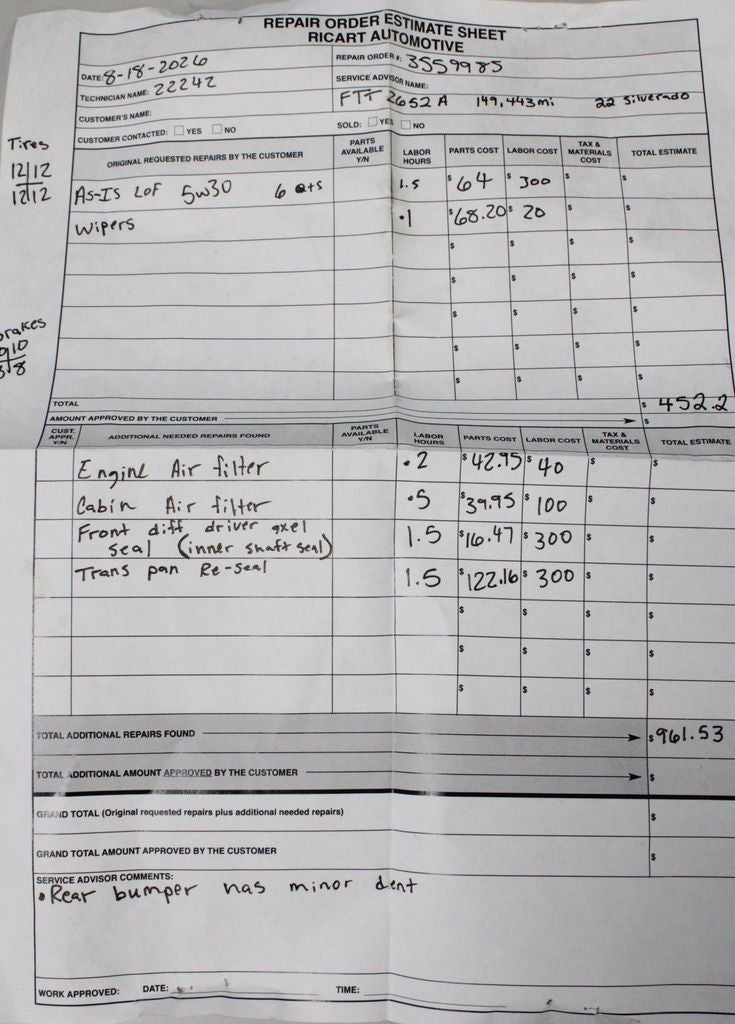 REPAIR ORDER ESTIMATE SHEET
RICART AUTOMOTIVE
DATE: 8-18-2026
REPAIR ORDER #: 3559985
TECHNICIAN NAME: 22242
SERVICE ADVISOR NAME:
CUSTOMER'S NAME:
FTT 2652A 149,443mi 22 Silverado
CUSTOMER CONTACTED: YES NO
SOLD: YES NO
Tires
12|12
12|12
ORIGINAL REQUESTED REPAIRS BY THE CUSTOMER PARTS AVAILABLE Y/N LABOR HOURS PARTS COST LABOR COST TAX & MATERIALS COST TOTAL ESTIMATE
As-Is LOF 5w30 6 qts 1.5 $64 $300 $ $
Wipers .1 $68.20 $20 $ $
$ $ $ $
$ $ $ $
$ $ $ $
$ $ $ $
$ $ $ $
brakes
9|10
8|8
TOTAL $452.2
AMOUNT APPROVED BY THE CUSTOMER $
CUST. APPR. Y/N ADDITIONAL NEEDED REPAIRS FOUND PARTS AVAILABLE Y/N LABOR HOURS PARTS COST LABOR COST TAX & MATERIALS COST TOTAL ESTIMATE
Engine Air filter .2 $42.95 $40 $ $
Cabin Air filter .5 $39.95 $100 $ $
Front diff driver axel
seal (inner shaft seal) 1.5 $16.47 $300 $ $
Trans pan Re-seal 1.5 $122.16 $300 $ $
$ $ $ $
$ $ $ $
$ $ $ $
TOTAL ADDITIONAL REPAIRS FOUND $961.53
TOTAL ADDITIONAL AMOUNT APPROVED BY THE CUSTOMER $
GRAND TOTAL (Original requested repairs plus additional needed repairs) $
GRAND TOTAL AMOUNT APPROVED BY THE CUSTOMER $
SERVICE ADVISOR COMMENTS:
• Rear bumper has minor dent
WORK APPROVED: DATE: TIME: